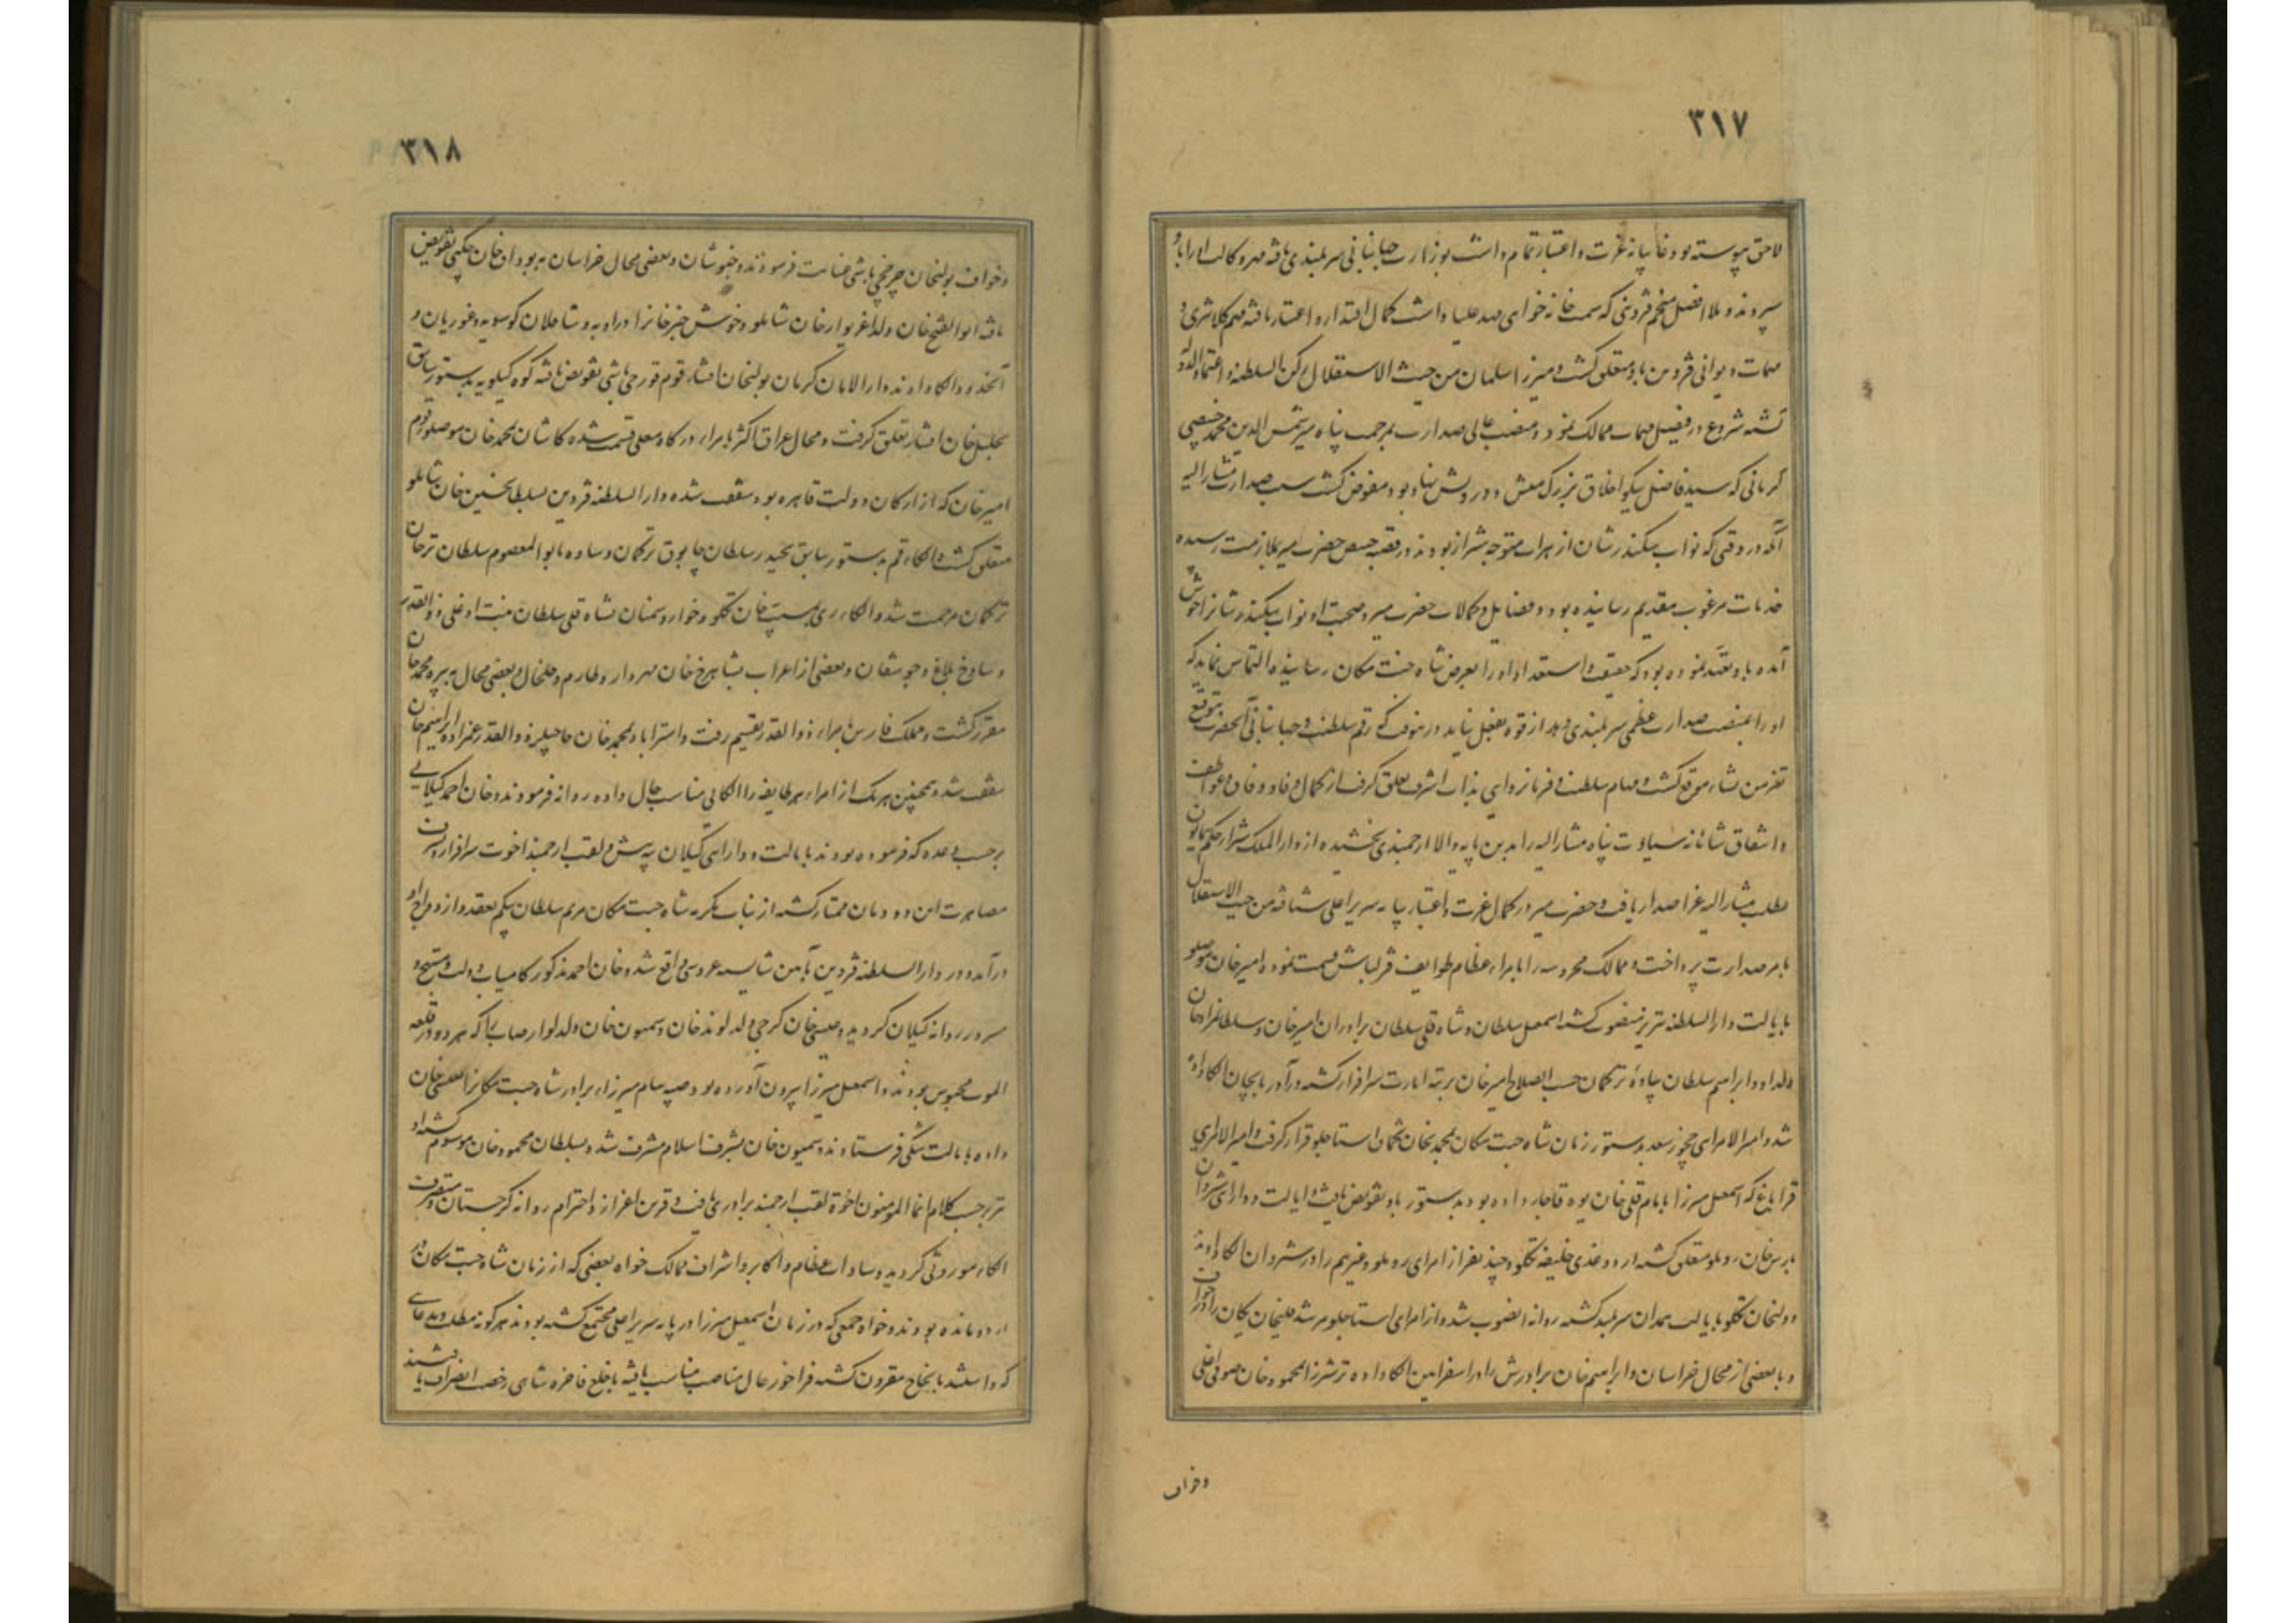 ۳۱۷
لاحق پیوسته بود غایبانه عزت و اعتبار تمام داشت بوزارت جهانبانی سربلندی یافته مهر وکالت او را باو
سپردند و ملا افضل منجم قزوینی که سمت خانه خواهی مهد علیا داشت کمال اقتدار و اعتبار یافته مهم کلانتری و
مهمات دیوانی قزوین باو متعلق گشت و میرزا سلمان من حیث الاستقلال رکن السلطنه و اعتماد الدوله
گشته شروع در فیصل مهمات ممالک نمود و منصب عالی صدارت بمرحمت پناه میر شمس الدین محمد خبیصی
کرمانی که سید فاضل نیکو اخلاق بزرگ منش و درویش نهاد بود مفوض گشت سبب صدارت مشار الیه
آنکه در وقتی که نواب سکندر شان از هرات متوجه شیراز بودند در قصبه خبیص حضرت میر بملازمت رسیده
خدمات مرغوب بتقدیم رسانیده بود و فضایل و کمالات حضرت میر و صحبت او نواب سکندر شانرا خوش
آمده باو تعهد نموده بود که حقیقت استعداد او را بعرض شاه جنت مکان رسانیده التماس نماید که
او را بمنصب صدارت عظمی سربلندی دهد از قوه بفعل نیامد درینوقت که رقم سلطنت و جهانبانی آنحضرت بتوقیع
تعز من تشاء موقع گشت و مهام سلطنت و فرمانروایی بذات اشرف تعلق گرفت از کمال وفا و وفاق و عواطف
و اشفاق شاهانه سیادت پناه مشار الیه را بدین پایه والا ارجمندی بخشیده از دار الملک شیراز حکم همایون
بطلب مشار الیه عز اصدار یافت و حضرت میر در کمال عزت و اعتبار بپایه سریر اعلی شتافته من حیث الاستقلال
بامر صدارت پرداخت و ممالک محروسه را بامراء عظام طوایف قزلباش قسمت نموده امیر خان موصلو
بایالت دار السلطنه تبریز منصوب گشته اسمعیل سلطان و شاه قلی سلطان برادران امیر خان و سلطان مراد خان
ولد او و ابراهیم سلطان بیاده ترکمان حسب الصلاح امیر خان برتبه امارت سرافراز گشته در آذربایجان الکا داده
شد و امیر الامرایی چخور سعد بدستور زمان شاه جنت مکان بمحمدیخان تخماق استاجلو قرار گرفت و امیر الامرایی
قراباغ که اسمعیل میرزا بامام قلی خان یوه قاجار داده بود بدستور باو تفویض یافت و ایالت و دارایی شیروان
بارس خان روملو متعلق گشته اردوغدی خلیفه تکلو و چند نفر از امرای روملو و غیرهم را در شیروان الکا دادند
دولتخان تکلو بایالت همدان سربلند گشته روانه انصوب شد و از امرای استاجلو مرشد قلیخان یکان را در خواف
و باخرز بعضی از محال خراسان و ابراهیم خان برادرش را در اسفراین الکا داده ترشیز را بمحمود خان صوفی اغلی
و خواف
۳۱۸
و خواف بولیخان چرخچی باشی عنایت فرمودند و خبوشان و بعضی محال خراسان به بوداق خان چگنی تفویض
یافته ابو الفتح خان ولد اغزیوار خان شاملو و خوش خبر خانرا در اوبه و شاقلان کوسویه و غوریان و
آنحدود الکا دادند و دار الامان کرمان بولیخان افشار قوم قورچی باشی تفویض یافته کوه کیلویه بدستور سابق
بخلیل خان افشار تعلق گرفت و محال عراق اکثر بامراء درگاه معلی قسمت شده کاشان بمحمد خان موصلو قوم
امیر خان که از ارکان دولت قاهره بود متعلق شده دار السلطنه قزوین بسلطان حسین خان شاملو
متعلق گشت و الکاء قم بدستور سابق بحیدر سلطان چابوق ترکمان و ساوه بابو المعصوم سلطان ترخان
ترکمان مرحمت شد و الکاء ری بمسیب خان تکلو و خوار و سمنان بشاه قلی سلطان منبت اوغلی ذو القدر
و ساوخ بلاغ و جوشقان و بعضی از اعراب بشاهرخ خان مهردار و طارم و خلخال و بعضی محال به پیره محمد خان
مقرر گشت و مملکت فارس بامراء ذو القدر تقسیم رفت و استراباد بمحمد خان حاجیلر ذو القدر عمزاده ابراهیم خان
متعلق شد و همچنین هر یک از امراء هر طایفه را الکایی مناسب حال داده روانه فرمودند و خان احمد گیلانی
برحسب وعده که فرموده بودند بایالت و دارایی گیلان بیه پیش و لقب ارجمند اخوت سرافراز و بشرف
مصاهرت این دودمان ممتاز گشته از بنات مکرمه شاه جنت مکان مریم سلطان بیگم بعقد و ازدواج او
درآمده در دار السلطنه قزوین بآیین شایسته عروسی واقع شده خان احمد مذکور کامیاب دولت و مبتهج و
مسرور روانه گیلان گردید و عیسی خان گرجی ولد لوند خان و سمیون خان ولد لوارصاب را که هر دو در قلعه
الموت محبوس بودند و اسمعیل میرزا بیرون آورده بود صبیه سام میرزا، برادر شاه جنت مکانرا بعیسی خان
داده بایالت شکی فرستادند و سمیون خان بشرف اسلام مشرف شده بسلطان محمود خان موسوم گشته او
نیز برحسب کلام انما المؤمنون اخوة لقب ارجمند برادری یافت و قرین اعزاز و احترام روانه گرجستان و متصرف
الکاء موروثی گردید و سادات عظام و اکابر و اشراف ممالک خواه بعضی که از زمان شاه جنت مکان در
اردو مانده بودند و خواه جمعی که در زمان اسمعیل میرزا در پایه سریر اعلی مجتمع گشته بودند هرگونه مطلب و مدعایی
که داشتند بانجاح مقرون گشته فراخور حال مناصب مناسب یافته باخلع فاخره شاهی رخصت انصراف یافتند